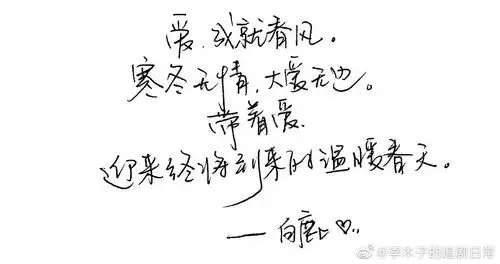 爱，成就春风。
寒冬无情，大爱无边。
带着爱，
迎来终将到来的温暖春天。
——白鹿♡..
@李木子的追剧日常